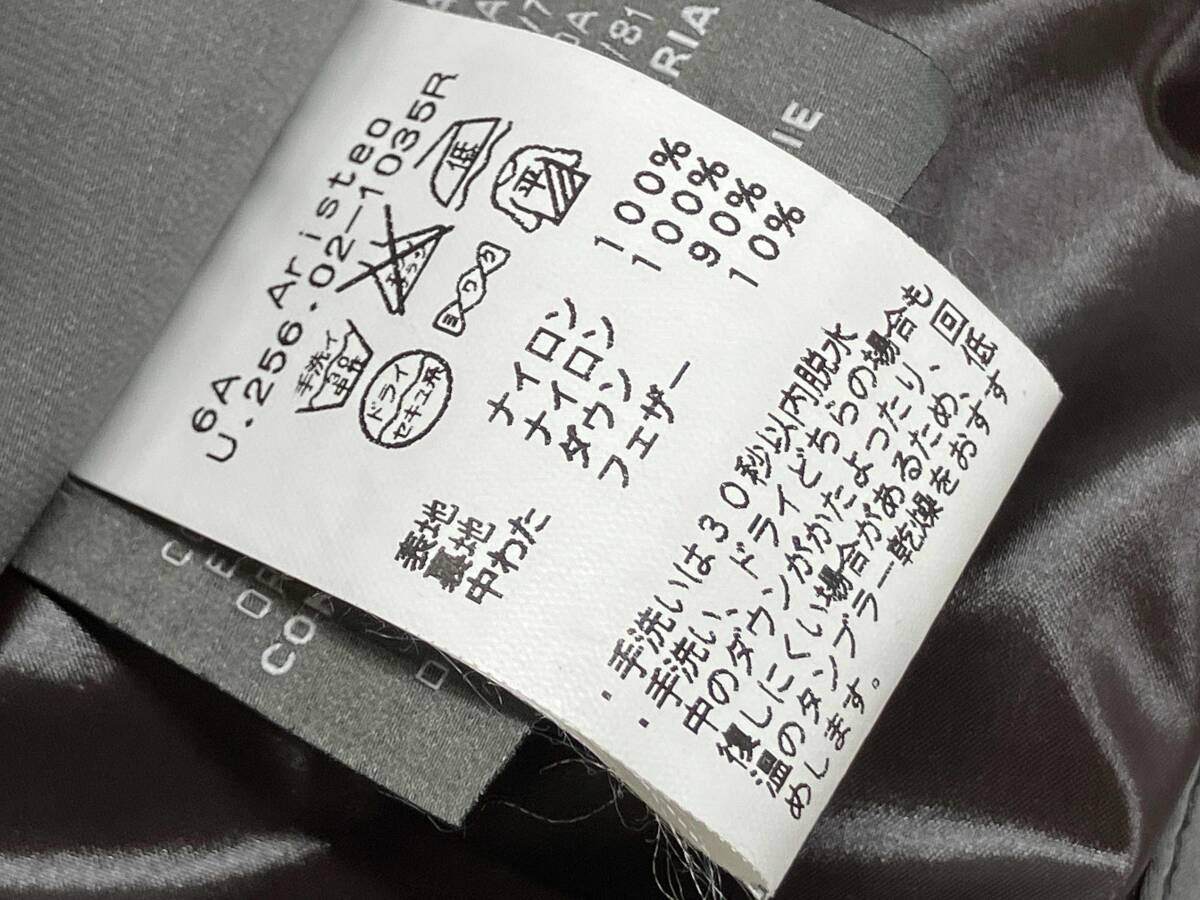 6A Aristeo
U.256.02-1035R
手洗イ
中性
エンソサラシ
低
ドライ
セキユ系
ヨワク
平
表地 ナイロン 100%
裏地 ナイロン 100%
中わた ダウン 90%
フェザー 10%
・手洗いは30秒以内脱水
・手洗い、ドライどちらの場合も
中のダウンがかたよったり、回
復しにくい場合があるため、低
温のタンブラー乾燥をおすす
めします。
RIA
IE
/81
OR
CON